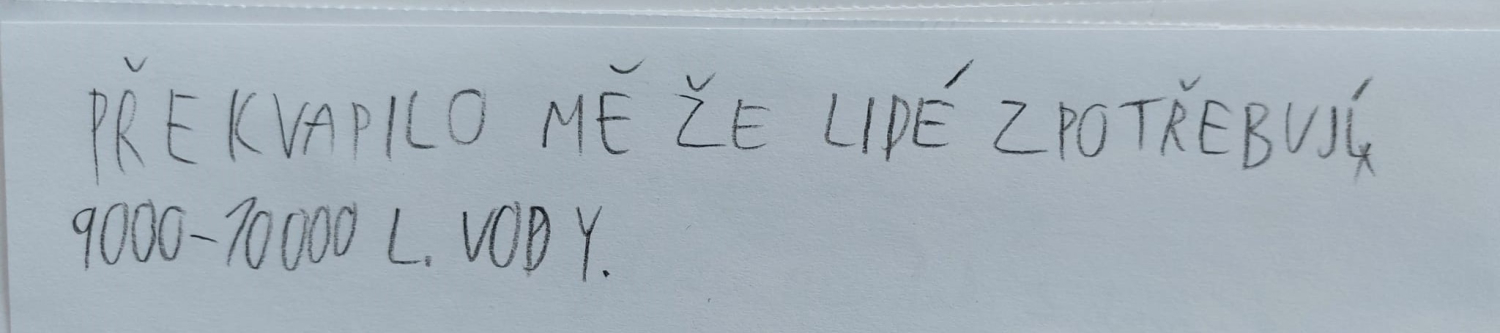 PŘEKVAPILO MĚ ŽE LIDÉ ZPOTŘEBUJÍ
9000-10000 L. VODY.